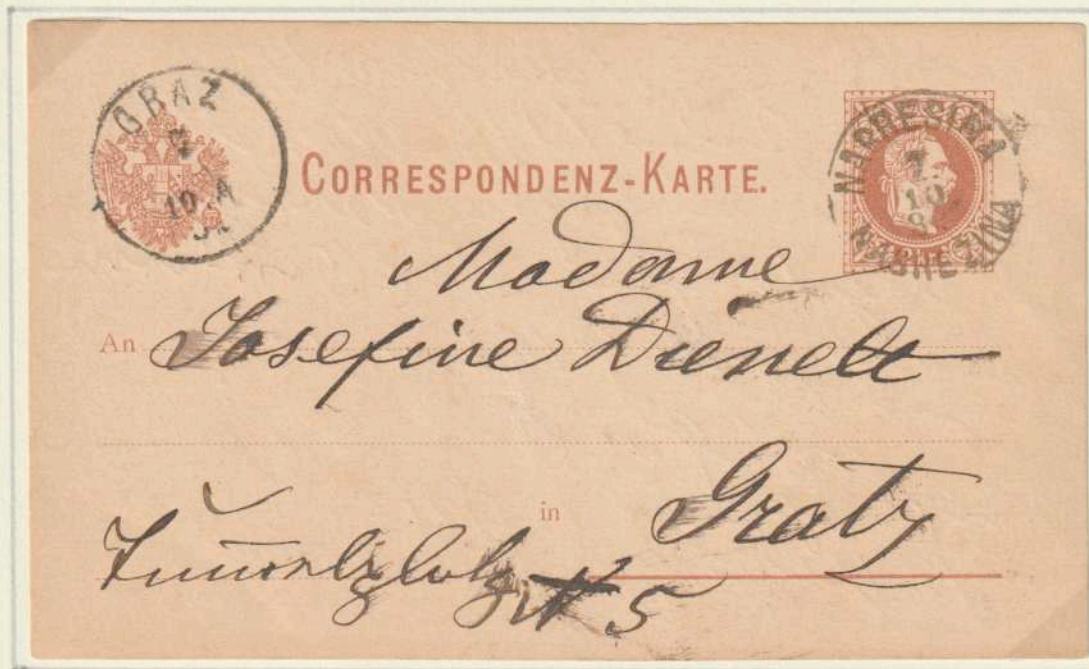 GRAZ
10 A
CORRESPONDENZ-KARTE.
NABRESINA
7.
10
NABREZINA
Madame
An Josefine Dienelt
in Gratz
N 5